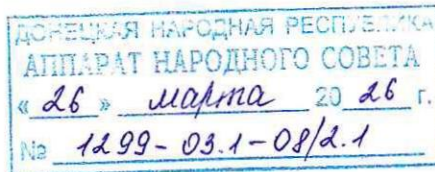 ДОНЕЦКАЯ НАРОДНАЯ РЕСПУБЛИКА
АППАРАТ НАРОДНОГО СОВЕТА
« 26 » марта 20 26 г.
№ 1299-03.1-08/2.1